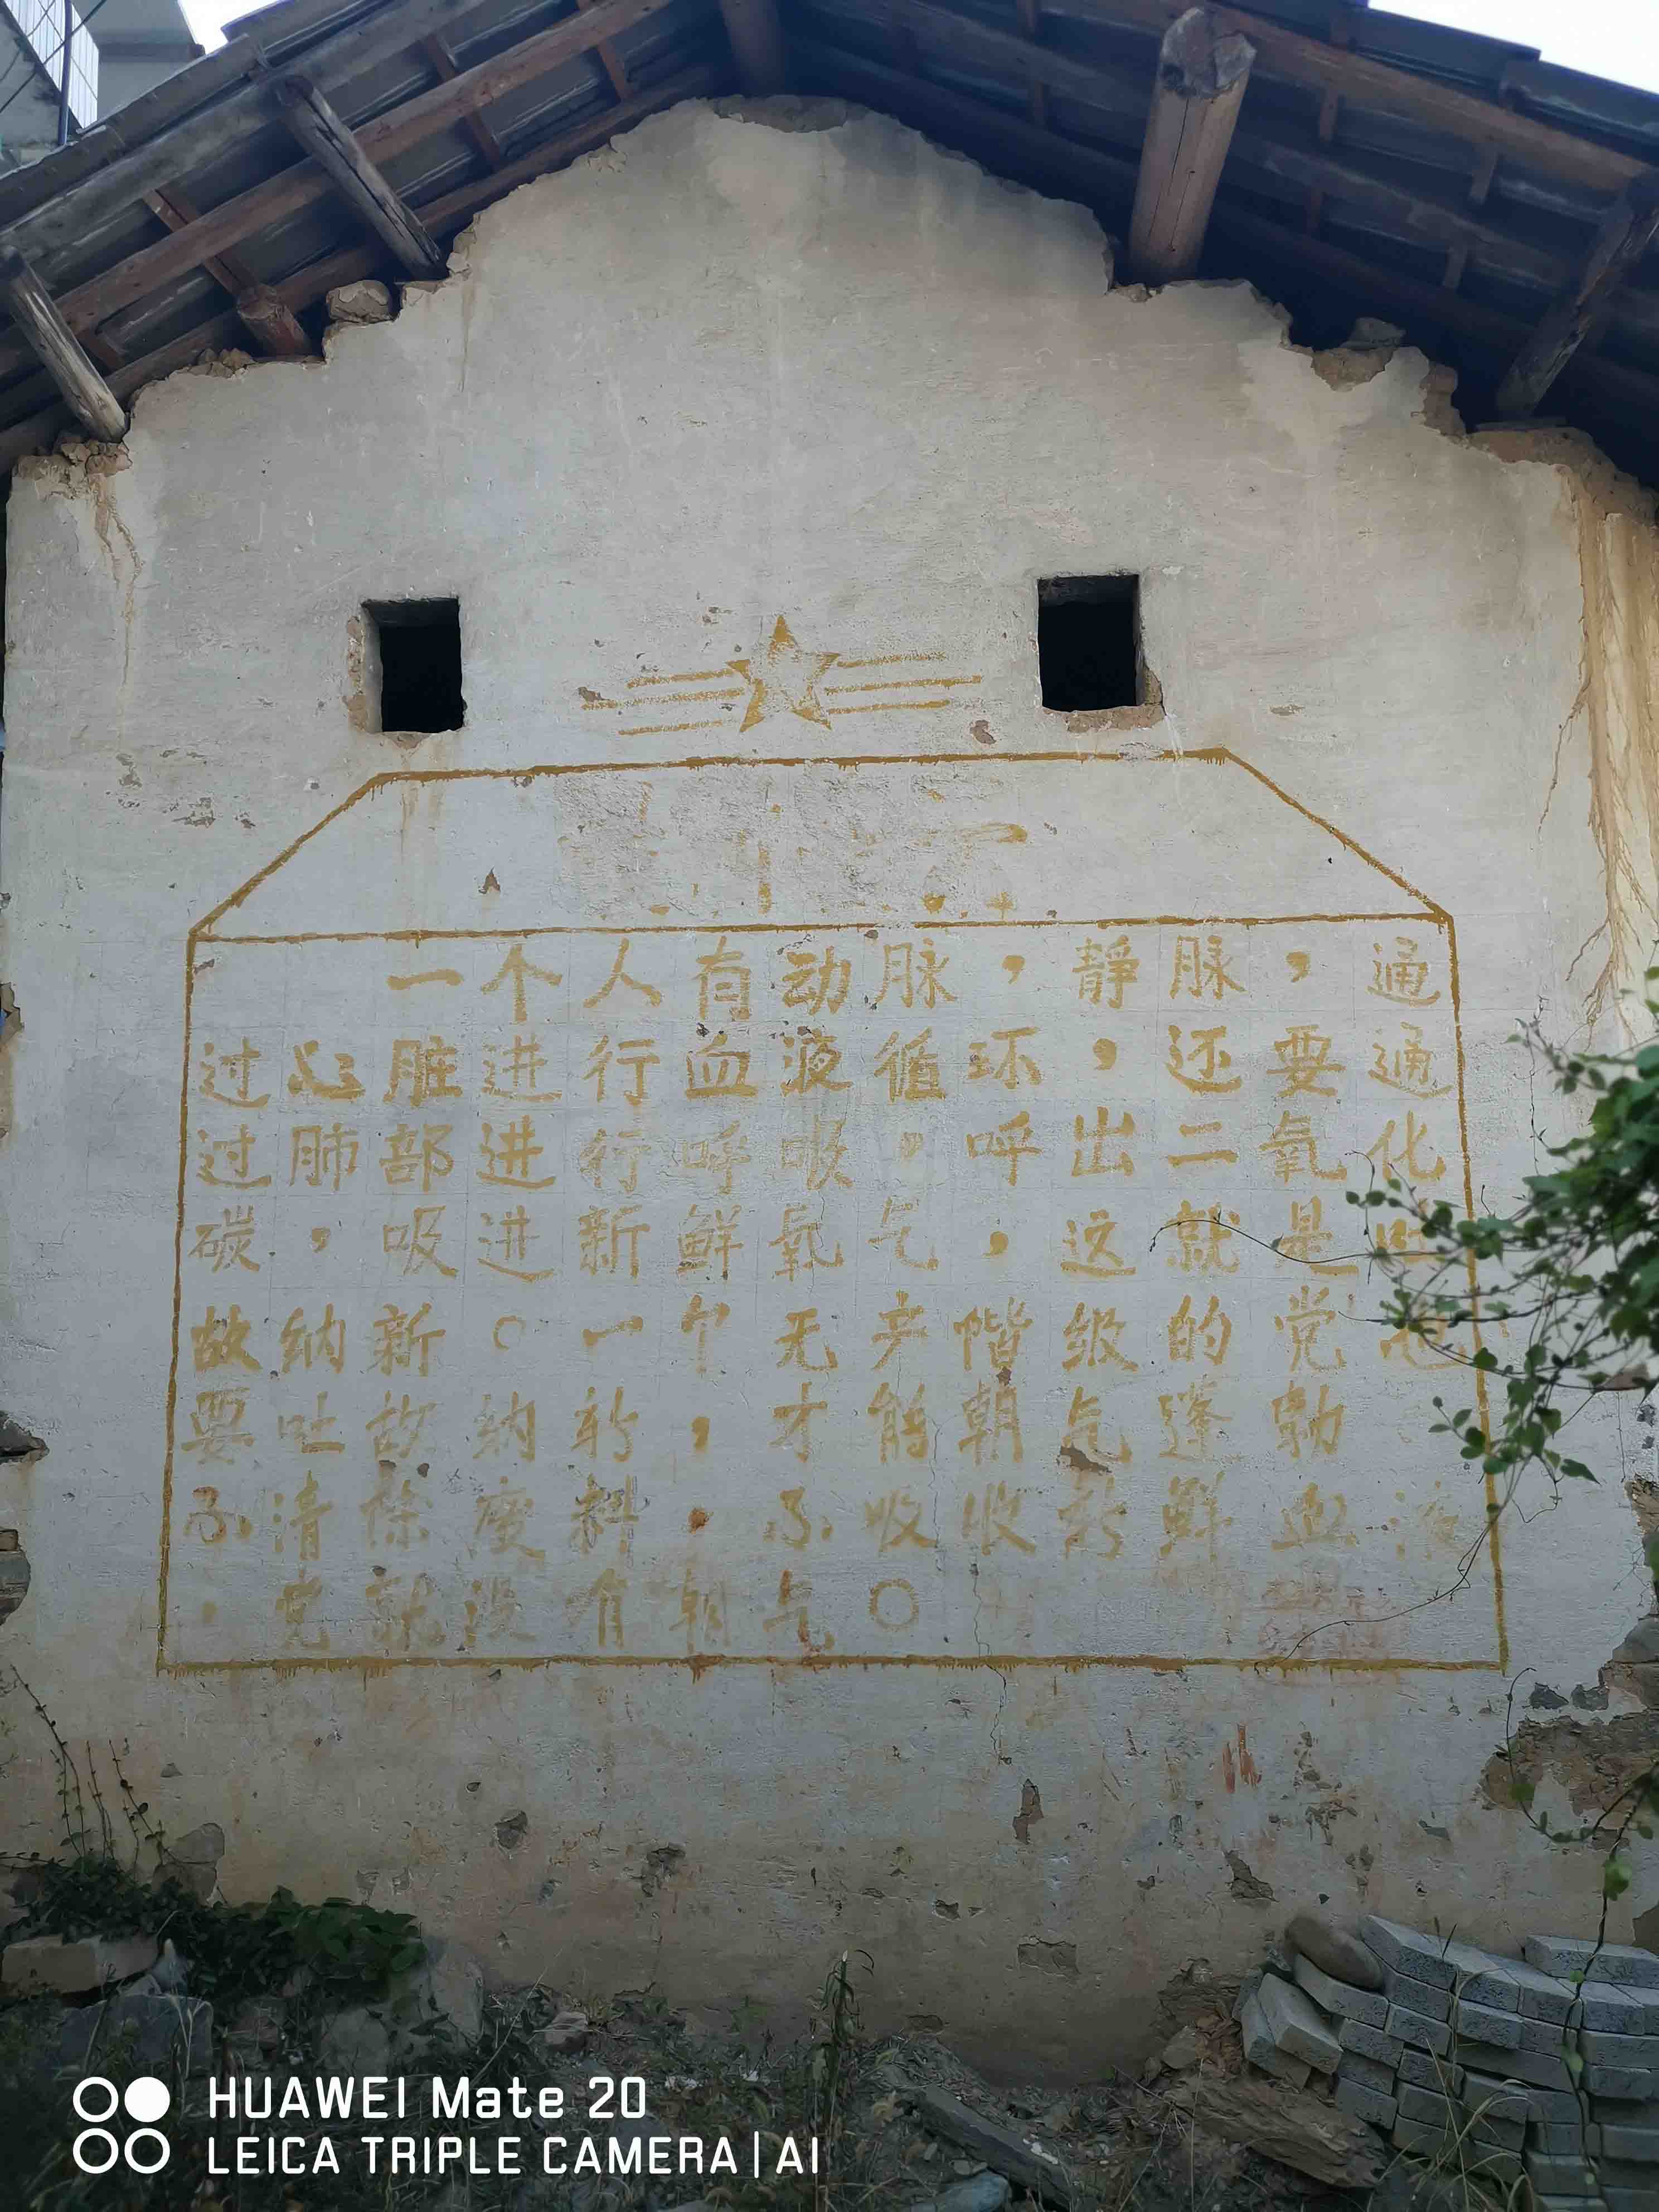 一个人有动脉，静脉，通
过心脏进行血液循环，还要通
过肺部进行呼吸，呼出二氧化
碳，吸进新鲜氧气，这就是吐
故纳新。一个无产阶级的党也
要吐故纳新，才能朝气蓬勃
不清除废料，不吸收新鲜血液
，党就没有朝气。
HUAWEI Mate 20
LEICA TRIPLE CAMERA | AI